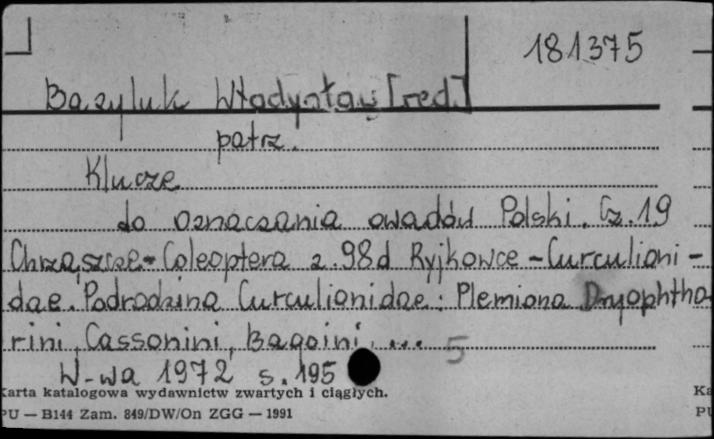 181375
Bazyluk Władysław [red.]
patrz.
Klucze
do oznaczania owadów Polski. Cz. 19
Chrząszcze-Coleoptera z. 98d Ryjkowce - Curculioni-
dae. Podrodzina Curculionidae: Plemiona Dryophtho
rini, Cossonini, Bagoini, ... 5
W-wa 1972 s. 195
Karta katalogowa wydawnictw zwartych i ciągłych.
PU — B144 Zam. 849/DW/On ZGG — 1991
Ka
PU